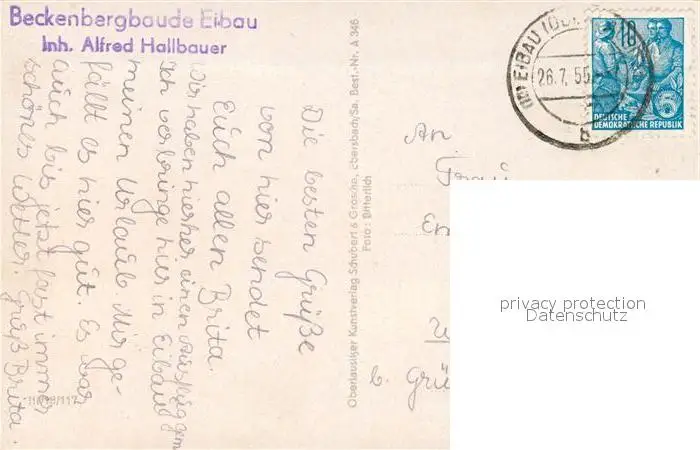 Beckenbergbaude Eibau
Inh. Alfred Hallbauer
Die besten Grüße
von hier sendet
Euch allen Brita.
Wir haben hierher einen Ausflug gem.
Ich verbringe hier in Eibau
meinen Urlaub. Mir ge-
fällt es hier gut. Es war
auch bis jetzt fast immer
schönes Wetter. Gruß Brita.
III/18/117
Oberlausitzer Kunstverlag Schubert & Grosche, Ebersbach/Sa. Best.-Nr. A 346
Foto: Bitterlich
EIBAU (OBERL
26.7.55
b
10
5
DEUTSCHE
DEMOKRATISCHE REPUBLIK
An
Frau
b. Grü
privacy protection
Datenschutz